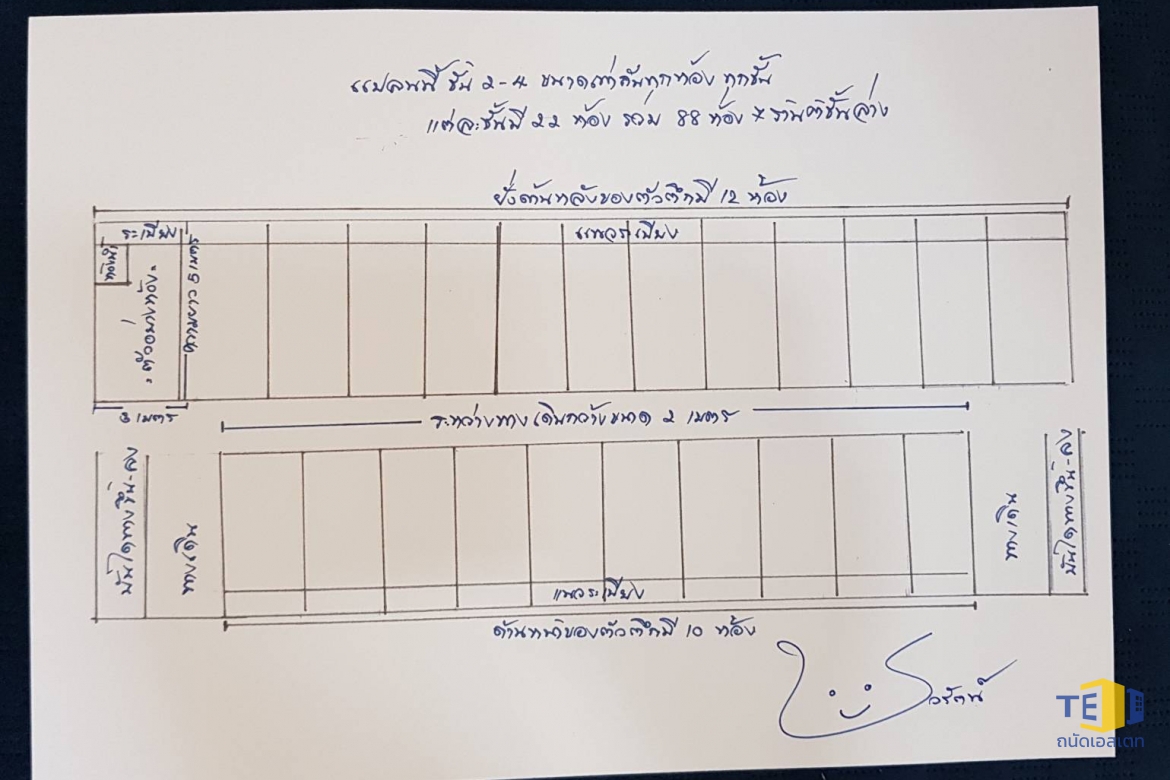 แปลนนี้ ชั้น 2-4 ขนาดเท่ากันทุกห้อง ทุกชั้น
แต่ละชั้นมี 22 ห้อง รวม 88 ห้อง
ฝั่งด้านหลังของตัวตึกมี 12 ห้อง
ระเบียง
แนวระเบียง
ห้องน้ำ
"ตัวอย่างห้อง"
ความยาว 6 เมตร
3 เมตร
ระหว่างทางเดินกว้างขนาด 2 เมตร
บันไดทางขึ้น-ลง
ทางเดิน
ทางเดิน
บันไดทางขึ้น-ลง
แนวระเบียง
ด้านหน้าของตัวตึกมี 10 ห้อง
TE
ถนัดเอสเตท